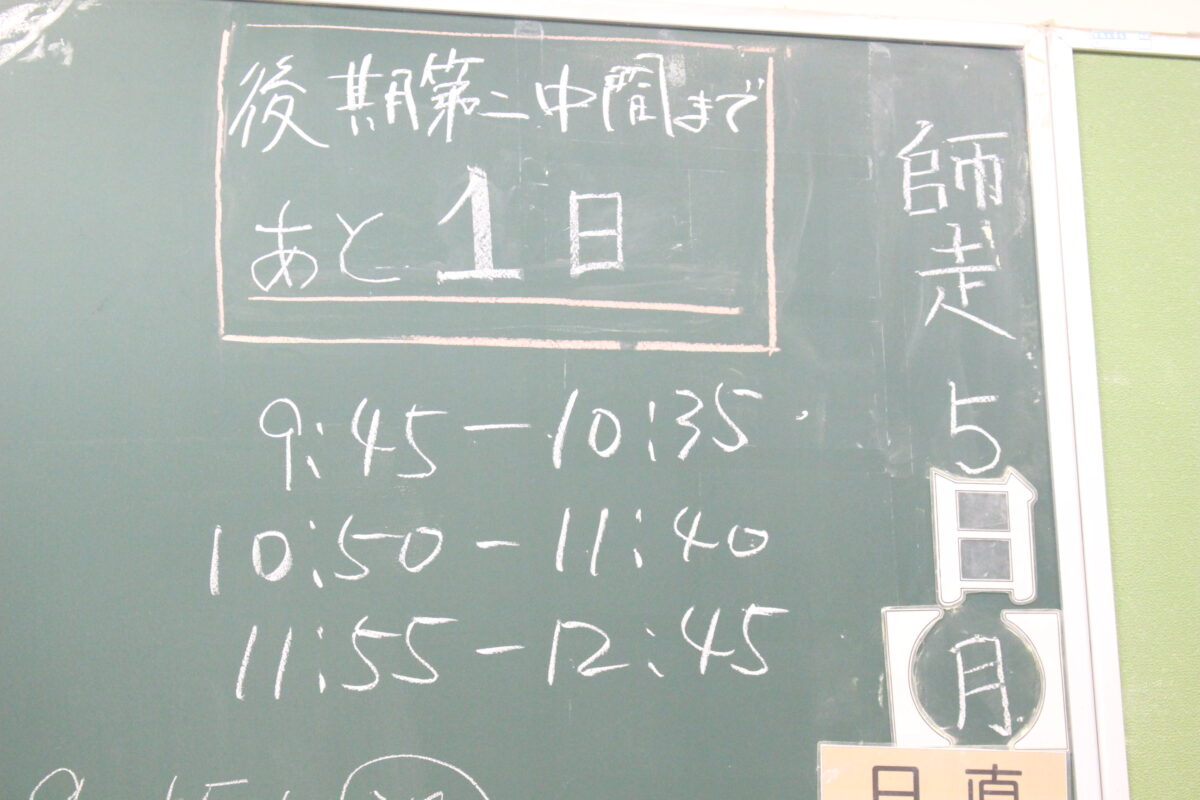 後期第二中間まで
あと1日
9:45-10:35
10:50-11:40
11:55-12:45
師走5日(月)
日直